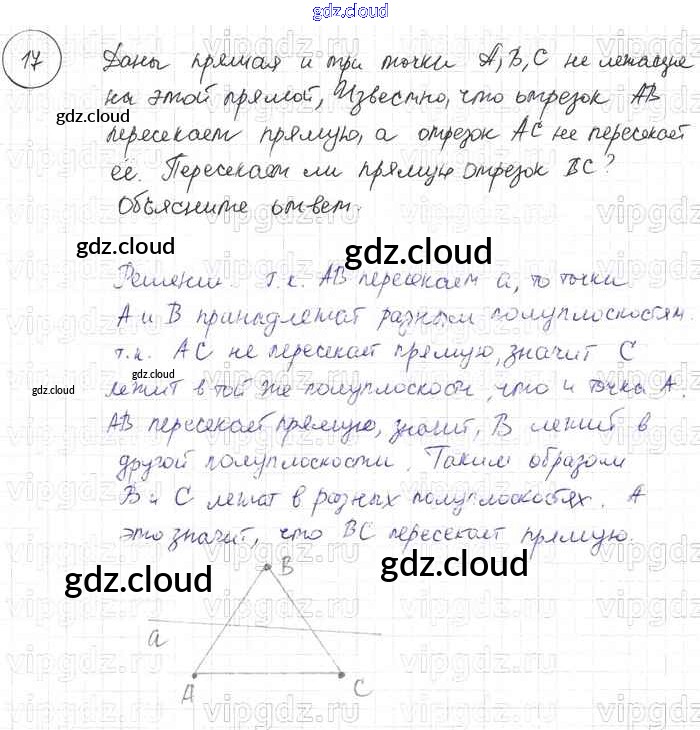 gdz.cloud
17 Даны прямая и три точки A, B, C не лежащие
на этой прямой, Известно, что отрезок AB
gdz.cloud
пересекает прямую, а отрезок AC не пересекает
её. Пересекает ли прямую отрезок BC?
Объясните ответ.
gdz.cloud gdz.cloud
Решении т.к. AB пересекает a, то точки
A и B принадлежат разным полуплоскостям.
т.к. AC не пересекает прямую, значит C
gdz.cloud лежит в той же полуплоскости, что и точка A.
AB пересекает прямую, значит, B лежит в
другой полуплоскости. Таким образом
B и C лежат в разных полуплоскостях. А
это значит, что BC пересекает прямую.
gdz.cloud gdz.cloud
B
a
A C